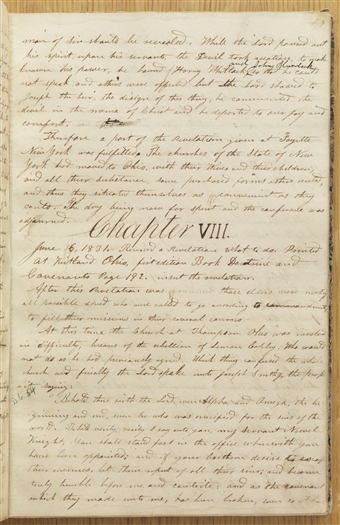 man of sin should be revealed. While the Lord poured out
his spirit upon his servants the Devil took occasion to make
known his power, he bound Harvey Whitlock and John Murdock so that he could
not speak and others were affected but the Lord showed to
Joseph the Seer, the design of this thing, he commanded the
devil in the name of Christ and he departed to our joy and
comfort.
Therefore a part of the Revelation given at Fayette
New York was fulfilled. The churches of the State of New
York had moved to Ohio, with their Wives and their children,
and all their substance some purchased farms others rented,
and thus they situated themselves as conveniently as they
could. The day being now far spent and the conference was
adjourned.
Chapter VIII.
June 6, 1831. Received a Revelation what to do. Printed
at Kirtland Ohio, first edition Book Doctrine and
Covenants Page 192. insert the revelation.
After this Revelation was these elders were nearly
all possible asked who were called to go
to fill their missions in their several courses
At this time the Church at Thompson Ohio was involved
in difficulty, because of the rebellion of Leman Copley. Who would
not do as he had previously agreed. Which thing confused the whole
church and finally the Lord spake unto Joseph Smith Jr the prophet
saying:
Behold thus saith the Lord, even Alpha and Omega, the be
ginning and end, even he who was crucified for the sins of the
world. Behold verily, verily I say unto you, my servant Newel
Knight, You shall stand fast in the office wherewith you
have been appointed: and if your brethren desire to escape
their enemies, let them repent of all their sins; and become
truly humble before me and contrite: and as the covenant
which they made unto me, has been broken, even so it has